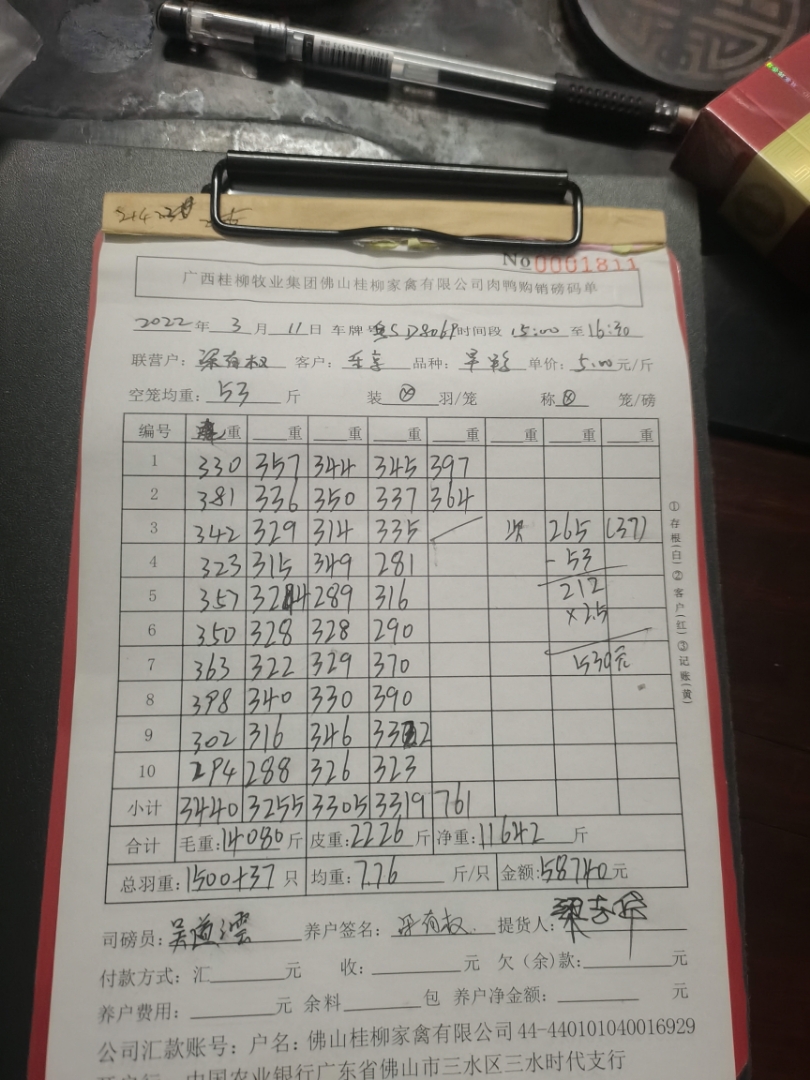 No 0001811
广西桂柳牧业集团佛山桂柳家禽有限公司肉鸭购销磅码单
2022年 3 月 11 日 车牌 时间段 15:00 至 16:30
联营户: 梁有权 客户: 品种: 单价: 5.00 元/斤
空笼均重: 53 斤 装 ⊗ 羽/笼 称 ⊗ 笼/磅
编号 重 重 重 重 重 重 重 重
1 330 357 344 345 397
2 381 336 350 337 364
3 342 329 314 335 265 (37)
4 323 315 349 281 -53
5 357 324 289 316 212
×2.5
6 350 328 328 290
7 363 322 329 370 1530元
8 398 340 330 390
9 302 316 346 332
10 294 288 326 323
小计 3440 3255 3305 3319 761
合计 毛重: 14080 斤 皮重: 2226 斤 净重: 11642 斤
总羽重: 1500+37 只 均重: 7.76 斤/只 金额: 58740 元
司磅员: 养户签名: 梁有权 提货人:
付款方式: 汇 元 收: 元 欠(余)款: 元
养户费用: 元 余料 包 养户净金额: 元
公司汇款账号: 户名: 佛山桂柳家禽有限公司 44-440101040016929
中国农业银行广东省佛山市三水区三水时代支行
①存根(白)②客户(红)③记账(黄)